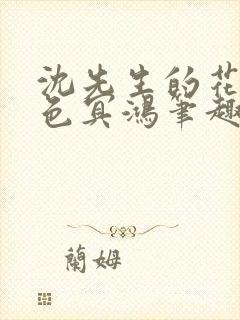 沈先生的花
色冥鴻筆趣
蘭姆